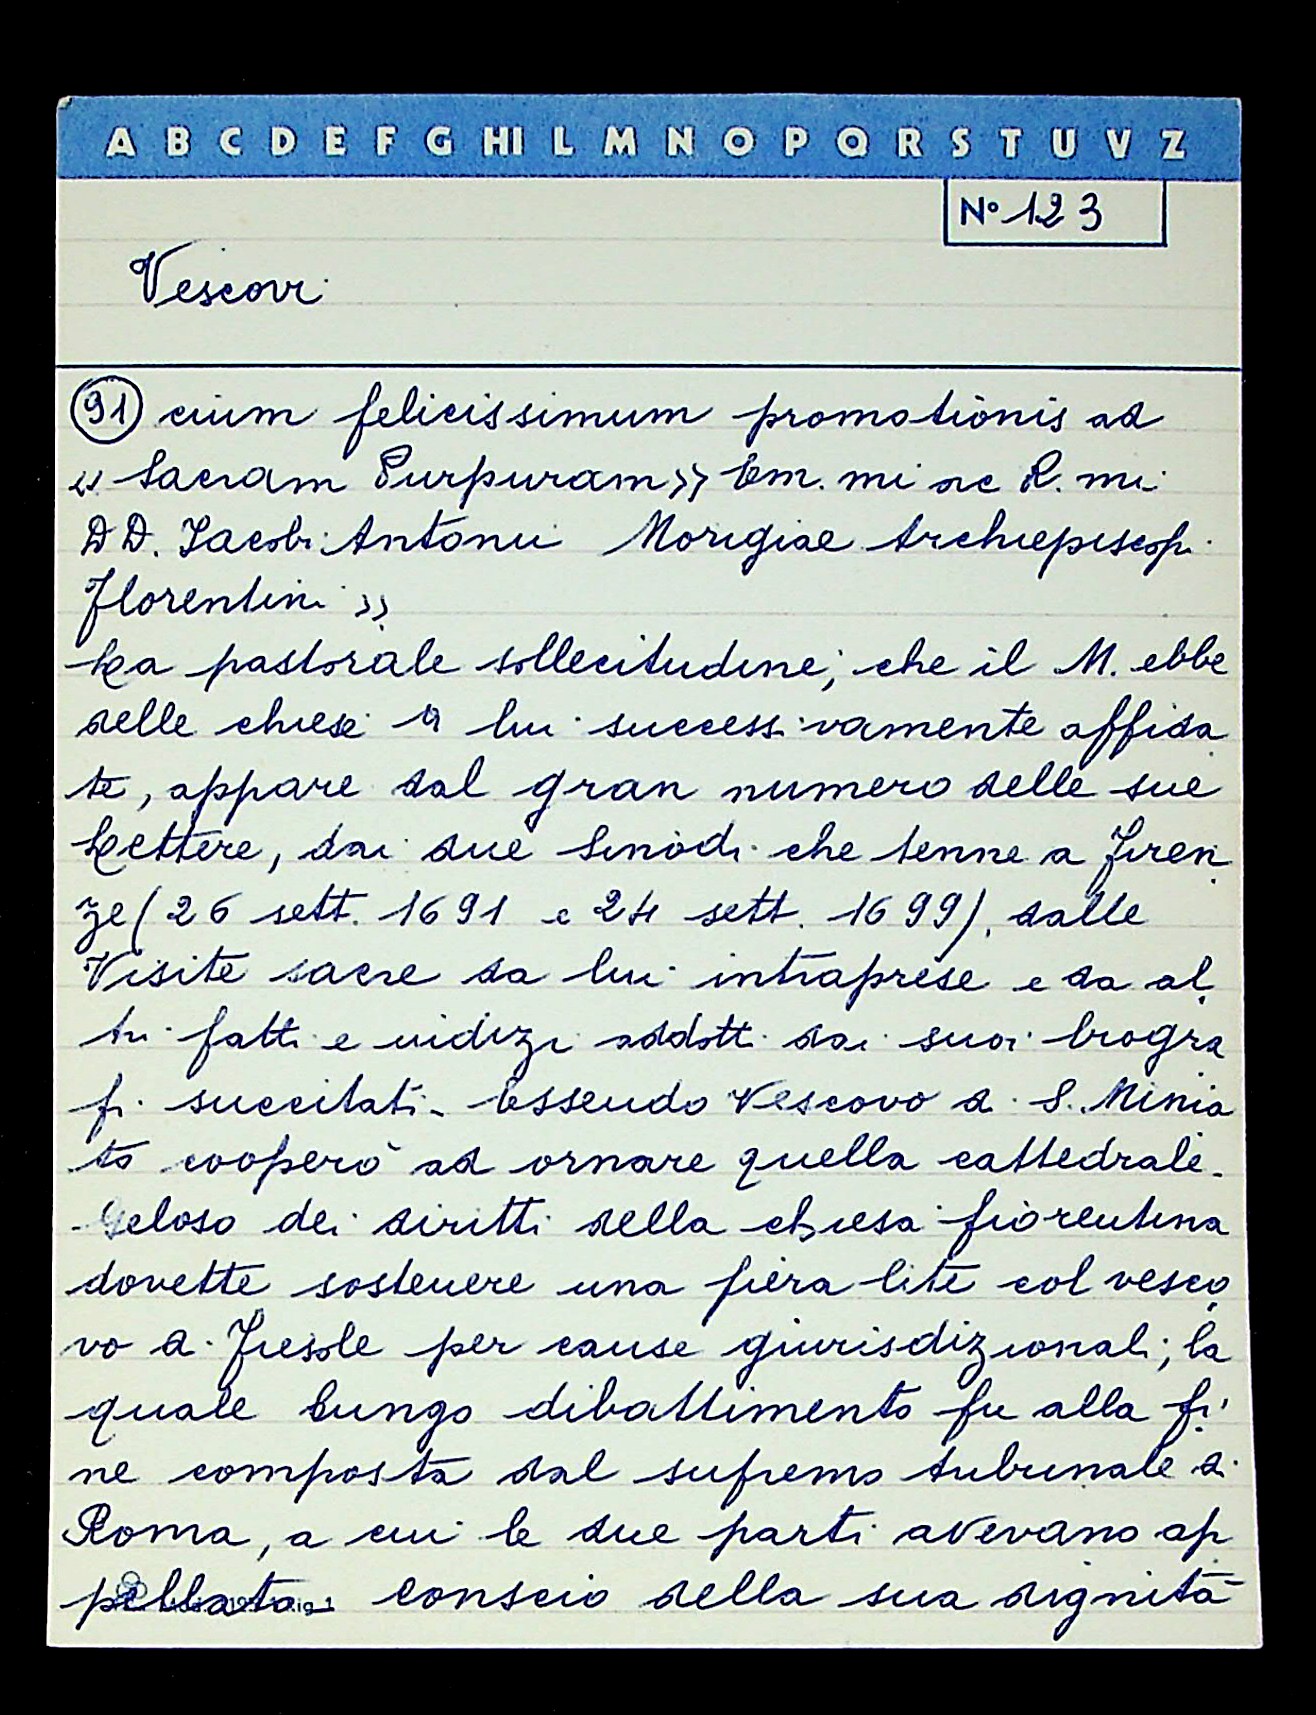 A B C D E F G HI L M N O P Q R S T U V Z
N° 123
Vescovi
91 cium felicissimum promotionis ad
« Sacram Purpuram» Em.mi ac R.mi
DD. Iacobi Antonii Morigiae Archiepiscopi
Florentini »
La pastorale sollecitudine, che il M. ebbe
delle chiese a lui successivamente affida
te, appare dal gran numero delle sue
Lettere, dai due Sinodi che tenne a Firen
ze (26 sett. 1691 e 24 sett. 1699), dalle
Visite sacre da lui intraprese e da al
tri fatti e indizi addotti dai suoi biogra
fi succitati. Essendo Vescovo di S. Minia
to cooperò ad ornare quella cattedrale.
Geloso dei diritti della chiesa fiorentina
dovette sostenere una fiera lite col vesco
vo di Fiesole per cause giurisdizionali; la
quale lungo dibattimento fu alla fi
ne composta dal supremo tribunale di
Roma, a cui le due parti avevano ap
pellata. Conscio della sua dignità